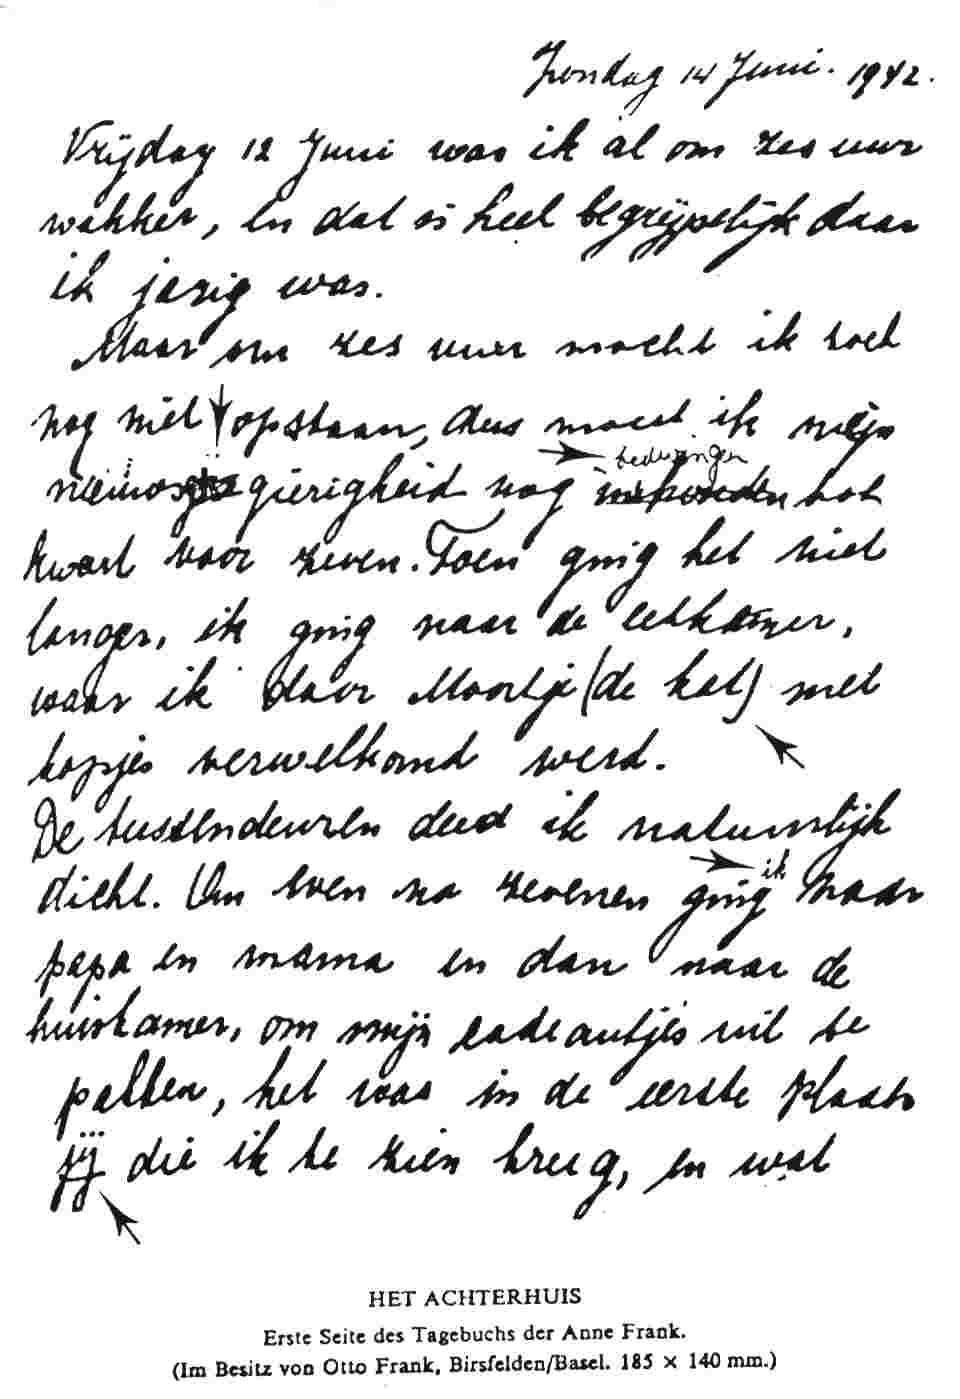 Zondag 14 Juni. 1942.
Vrijdag 12 Juni was ik al om zes uur
wakker, en dat is heel begrijpelijk daar
ik jarig was.
Maar om zes uur mocht ik toch
nog niet opstaan, dus moest ik mijn
bedwingen
nieuwsgierigheid nog inhouden tot
kwart voor zeven. Toen ging het niet
langer, ik ging naar de eetkamer,
waar ik door Moortje (de kat) met
kopjes verwelkomd werd.
De tussendeuren deed ik natuurlijk
dicht. Om even na zevenen ging ik naar
papa en mama en dan naar de
huiskamer, om mijn cadeautjes uit te
pakken, het was in de eerste plaats
jij die ik te zien kreeg, en wat
HET ACHTERHUIS
Erste Seite des Tagebuchs der Anne Frank.
(Im Besitz von Otto Frank, Birsfelden/Basel. 185 × 140 mm.)